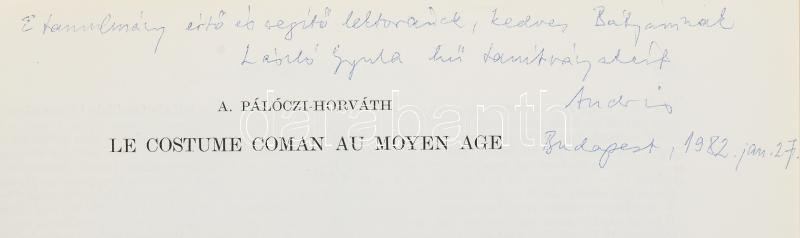 E tanulmány értő és segítő lektorának, kedves Bátyámnak
László Gyula hű tanítványaként
Andris
A. PÁLÓCZI-HORVÁTH
darabanth
LE COSTUME COMAN AU MOYEN AGE
Budapest, 1982. jan. 27.